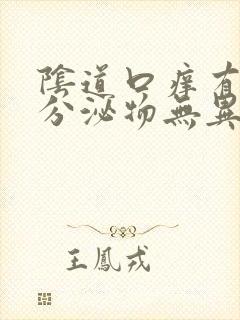 陰道口癢有
分泌物無異
王鳳戎